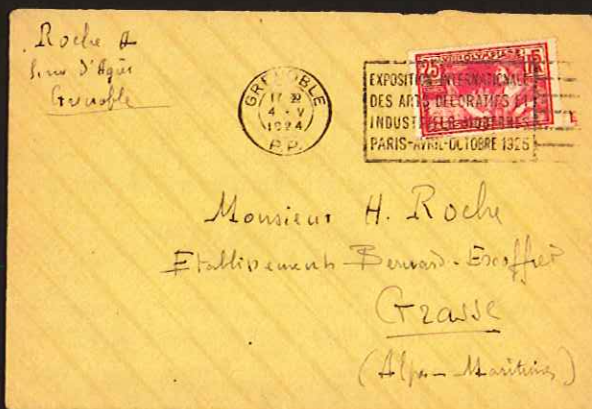 Roche A
5, rue d'Agier
Grenoble
GRENOBLE
17
4 - V
1924
P.P.
25
15
EXPOSITION INTERNATIONALE
DES ARTS DECORATIFS ET
INDUSTRIELS MODERNES
PARIS-AVRIL-OCTOBRE 1925
Monsieur H. Roche
Etablissements Bernard-Escoffier
Grasse
(Alpes-Maritimes)